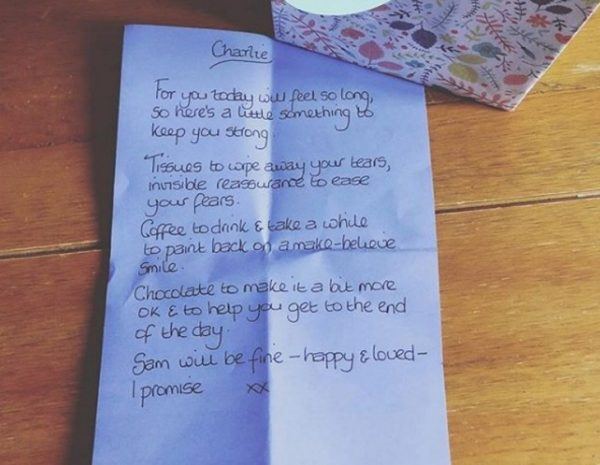 Charlie
For you today will feel so long,
so here's a little something to
keep you strong.
Tissues to wipe away your tears,
invisible reassurance to ease
your fears.
Coffee to drink & take a while
to paint back on a make-believe
smile.
Chocolate to make it a bit more
OK & to help you get to the end
of the day.
Sam will be fine - happy & loved -
I promise xx